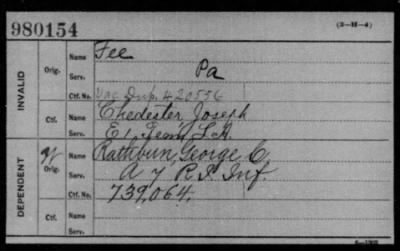 980154
(3-H-4)
Name Fee
Orig. Serv. Pa
Ctf. No. Vac Dup. 420556
INVALID
Name Chedester, Joseph
Ctf. Serv. E 1, Tenn. L.A.
W Name Rathbun, George C.
Orig. Serv. A 7 R.I. Inf.
Ctf. No. 739,064.
DEPENDENT
Name
Ctf. Serv.